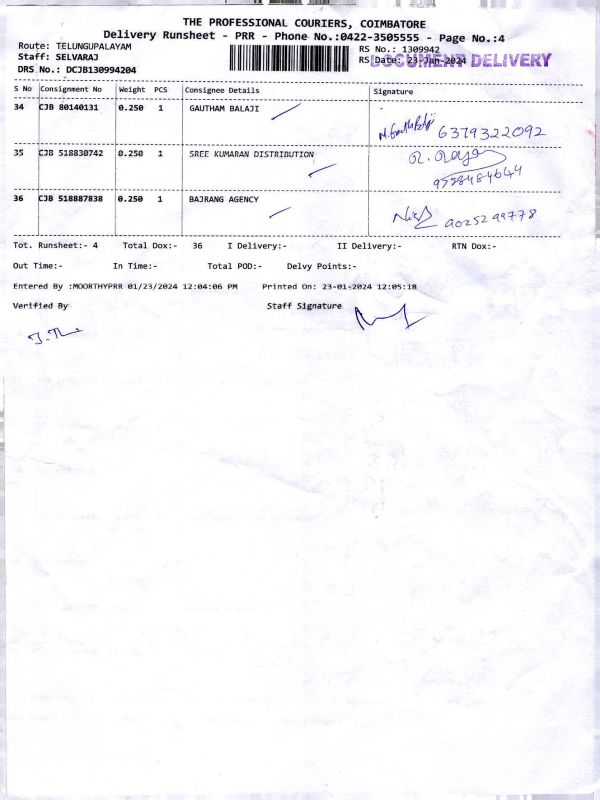 THE PROFESSIONAL COURIERS, COIMBATORE
Delivery Runsheet - PRR - Phone No.:0422-3505555 - Page No.:4
Route: TELUNGUPALAYAM
RS No.: 1309942
Staff: SELVARAJ
RS Date: 23-Jan-2024
DOCUMENT DELIVERY
DRS No.: DCJB130994204
S No Consignment No Weight PCS Consignee Details Signature
34 CJB 80140131 0.250 1 GAUTHAM BALAJI
6379322092
35 CJB 518830742 0.250 1 SREE KUMARAN DISTRIBUTION
36 CJB 518887838 0.250 1 BAJRANG AGENCY
9025299778
Tot. Runsheet:- 4 Total Dox:- 36 I Delivery:- II Delivery:- RTN Dox:-
Out Time:- In Time:- Total POD:- Delvy Points:-
Entered By :MOORTHYPRR 01/23/2024 12:04:06 PM Printed On: 23-01-2024 12:05:18
Verified By Staff Signature